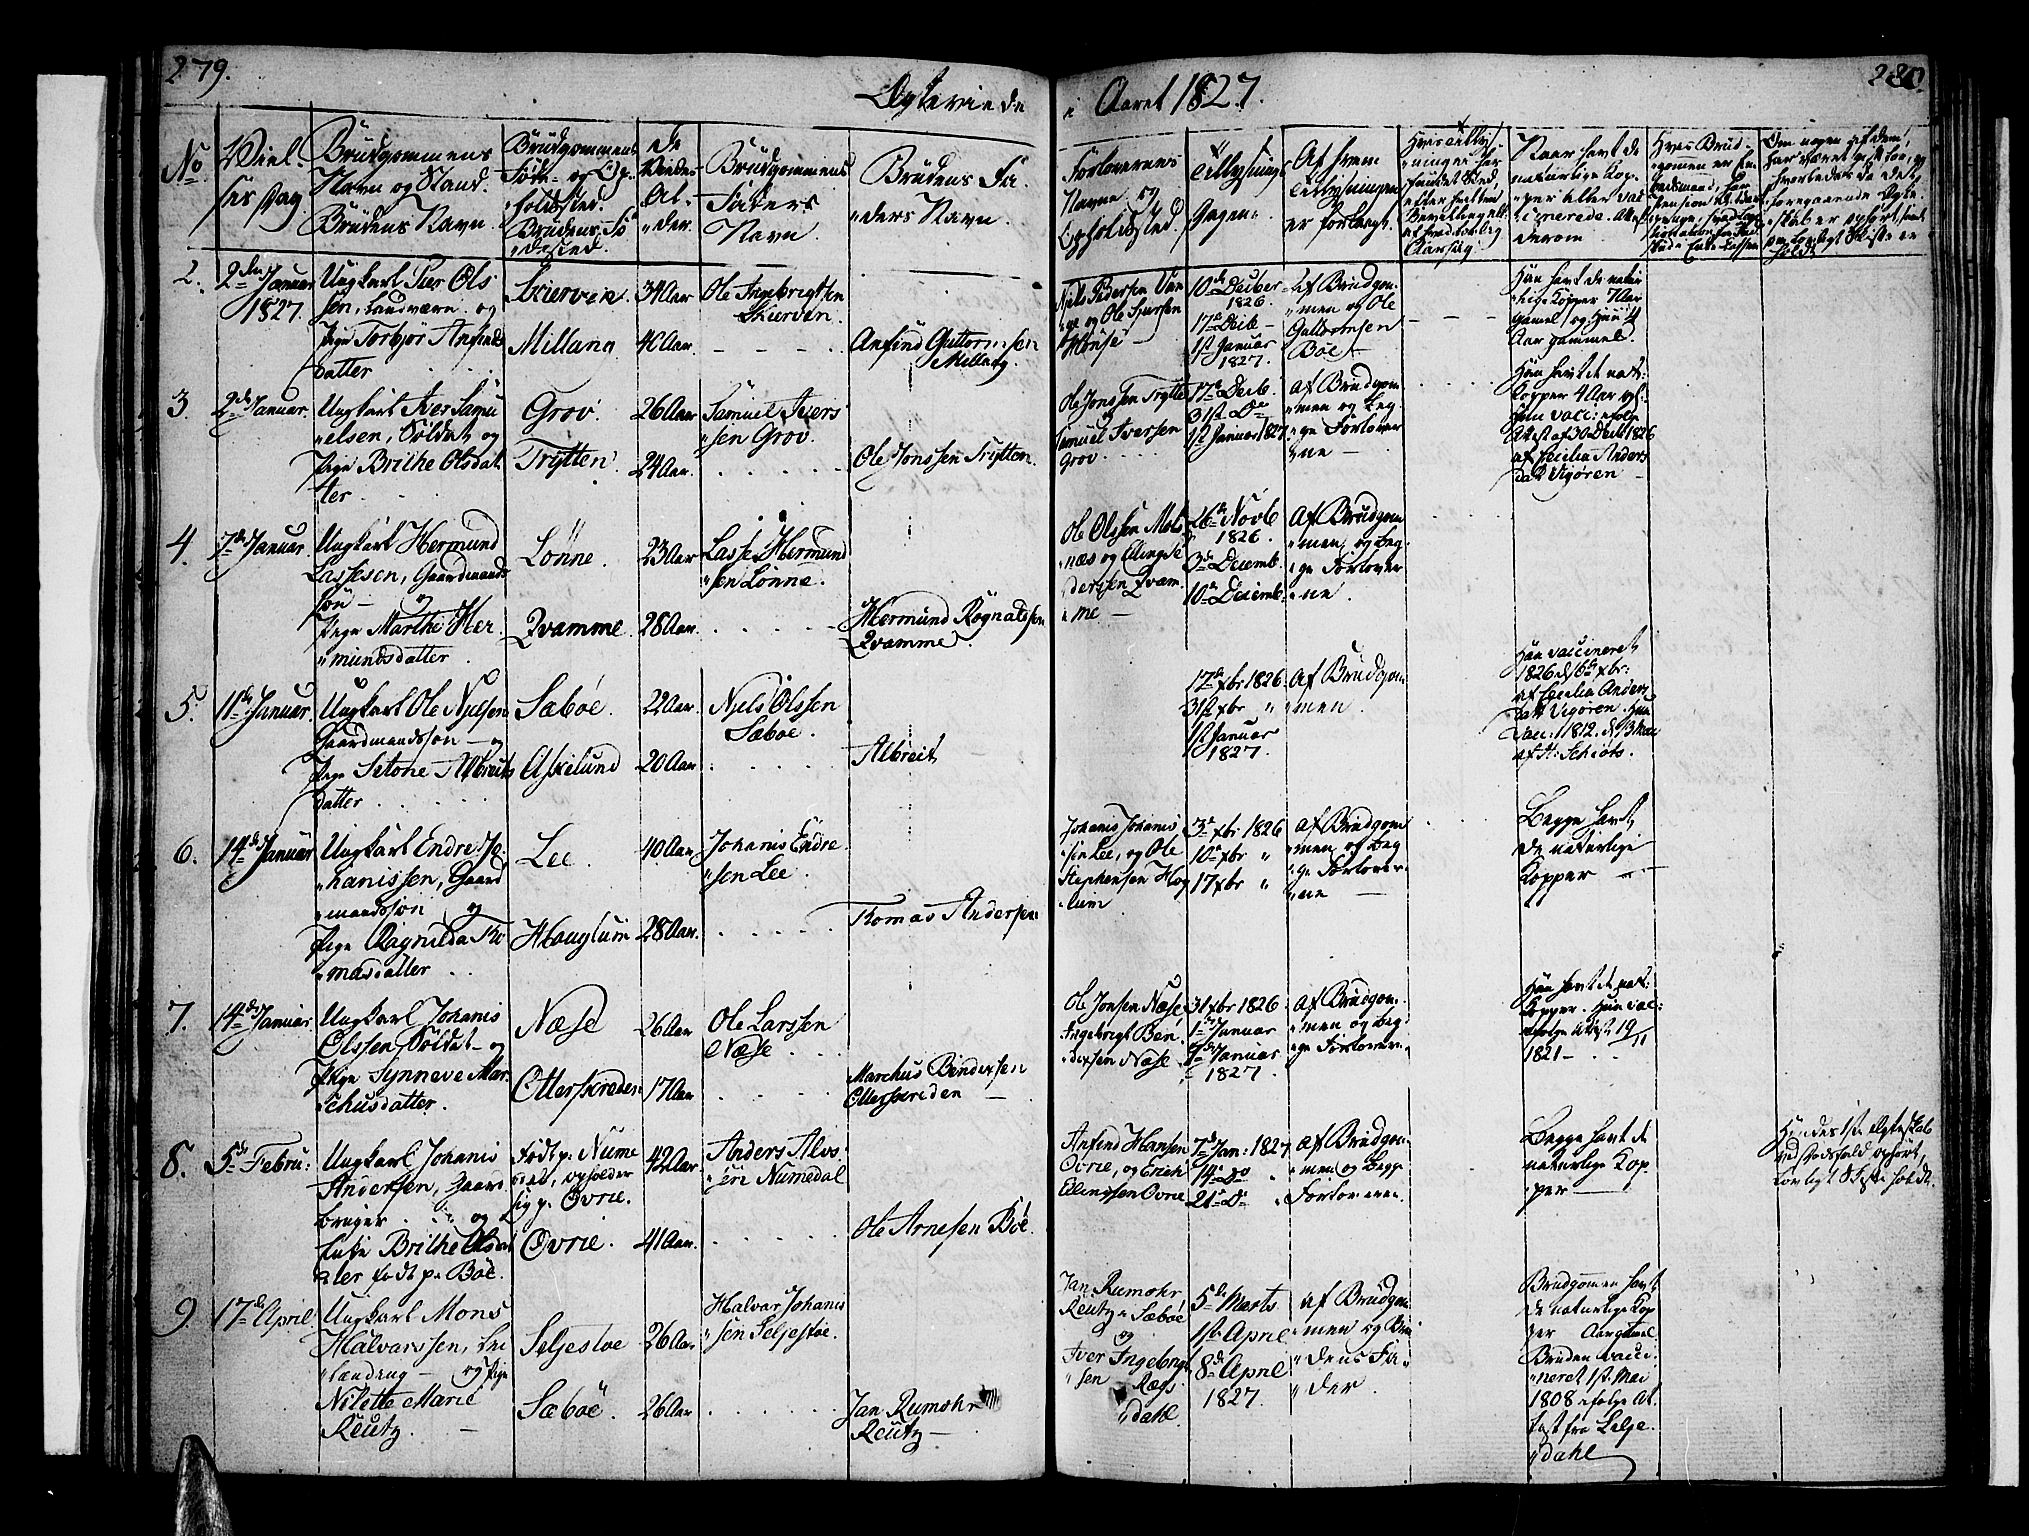 279.
Ægteviede
i Aaret 1827.
280.
No
Viel-
ses Dag
Brudgommens
Navn og Stand.
Brudens Navn.
Brudgommens
Føde- og Op-
holdsted.
Brudens Fø-
dested.
de
Viedes
Al-
der.
Brudgommens
Faders
Navn.
Brudens Fa-
ders Navn.
Forlovernes
Navne og
Opholdsted.
Tillysnings
Dagene.
Af hvem
Tillysningen
er forlangt.
Naar havt de
naturlige Kop-
per eller vac-
cinerede. Attest
derom
2.
2den Januar
1827.
Ungkarl Peer Ols
sen, Landværn. og
Pige Torbjør Anfinds
datter
Skierven.
Millang
34 Aar
40 Aar.
Ole Ingebrigtsen
Skierven.
Anfind Guttormsen
Millang.
Niels Pedersen Van
ge og Ole Sjursen
10de Decber
1826.
17de Decb.
1st Januar
1827.
af Brudgom-
men og Ole
Guttormsen
Bøe
Han havt de natur
lige Kopper 7 Aar
gamel og Hun 4
Aar gammel.
3.
2de Januar.
Ungkarl Iver Samu
elsen, Soldat og
Pige Brithe Olsdat
ter.
Grov.
Trytten
26 Aar
24 Aar.
Samuel Ivers
sen Grov.
Ole Jonssen Trytten.
Ole Jonssen Trytte
Samuel Iversen
Grov.
17de Decb.
31st Do
1st Januar 1827
af Brudgom
men og beg-
ge Forlover
ne
Han havt de nat:
Kopper 4 Aar gl:
Hun vacc: efølge
Attest af 30 Decb 1826
af Cecilia Anders
datt Vigøren
4.
7de Januar.
Ungkarl Hermund
Lassesen, Gaardmands
søn og
Pige Marthe Her
mundsdatter.
Lønne.
Qvamme.
23 Aar
28 Aar.
Lasse Hermund
sen Lønne.
Hermund Rognaldsen
Qvamme.
Ole Olssen Mol
næs og Elling Pe
dersen Qvam
me
26de Novb
1826.
3de Decemb.
10de Decemb.
af Brudgom
men og beg-
ge Forlover
ne.
5.
11de Januar.
Ungkarl Ole Nielsen
Gaardmandssøn og
Pige Setone Albreits
datter
Sæbøe.
Askelund
22 Aar.
20 Aar.
Niels Olssen
Sæbøe.
Albreit
17de xbr 1826
31st xbr "
1st Januar
1827.
af Brudgom
men.
Han vaccineret
1826 d. 6de xbr:
af Cecilia Anders
datt Vigøren. Hun
vacc: 1812. d. 13 Mai
af H. Schiøts.
6.
14de Januar
Ungkarl Endre Jo-
hanissen, Gaard
mandssøn og
Pige Ragnilda Tho
masdatter
Lee.
Houglum
40 Aar
28 Aar.
Johanis Endre
sen Lee.
Thomas Andersen
Johanis Johanis
sen Lee, og Ole
Stephensen Hog
lum
3de xbr 1826
10de xbr "
17 xbr "
af Brudgom
men og beg
ge Forlover-
ne
Begge havt
de naturlige
Kopper
7.
14de Januar.
Ungkarl Johanis
Olssen, Soldat og
Pige Synneve Mar
chusdatter.
Næse
Otterskreden
26 Aar
17 Aar
Ole Larssen
Næse
Marchus Bendixsen
Otterskreden
Ole Jonsen Næse
Ingebrigt Ben
dixsen Næse
31 xbr 1826
1de Januar
7de Januar
1827.
af Brudgom-
men og beg-
ge Forlover-
Han havt de nat:
Kopper. Hun vac:
efølge Attest 19/11
1821
8.
5de Febru:
Ungkarl Johanis
Andersen, Gaard
bruger og
Enke Brithe Olsdat
ter født p. Bøe.
født p. Nume
dal, opholder
sig p. Ovrie.
Ovrie.
42 Aar.
41 Aar.
Anders Alvs
søn Numedal
Ole Arnesen Bøe.
Anfind Hansen
Ovrie, og Erich
Ellingsen Ovrie
7de Jan: 1827
14de Do "
21de Do "
af Brudgom-
men og begge
Forloverne.
Begge havt de
naturlige Kop-
per
Hendes 1ste Ægteskab
ved Dødsfald ophørt,
Lovligt Skifte holdt.
9.
17de April.
Ungkarl Mons
Halvarssen, Lei
lændng og Pige
Nilette Marie
Reutz.
Seljestøe
Sæbøe.
26 Aar.
26 Aar
Halvar Johanis
sen Seljestøe.
Jan Rumohr
Reutz
Jan Rumohr
Reutz Sæbøe
og
Iver Ingebrigt
sen
dahl.
5de Marts
1st April
8de April
1827.
af Brudgom
men og Bru
dens Fa
der.
Brudgomen havt
de naturlige Kop
per Aargamel.
Bruden vacci
neret 1st Mai
1808 efølge At
test fra Lelje
dahl